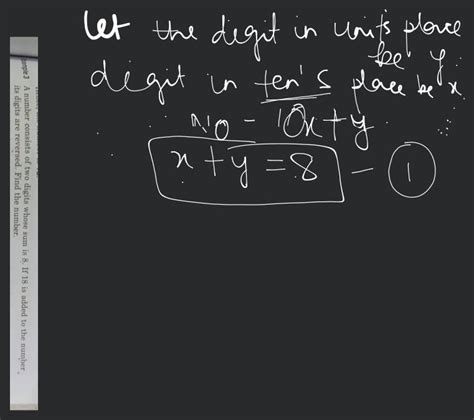 let the digit in unit's place
be y.
digit in ten's place be x
∴ no - 10x+y
x + y = 8 - 1
A number consists of two digits whose sum is 8. If 18 is added to the number,
its digits are reversed. Find the number.